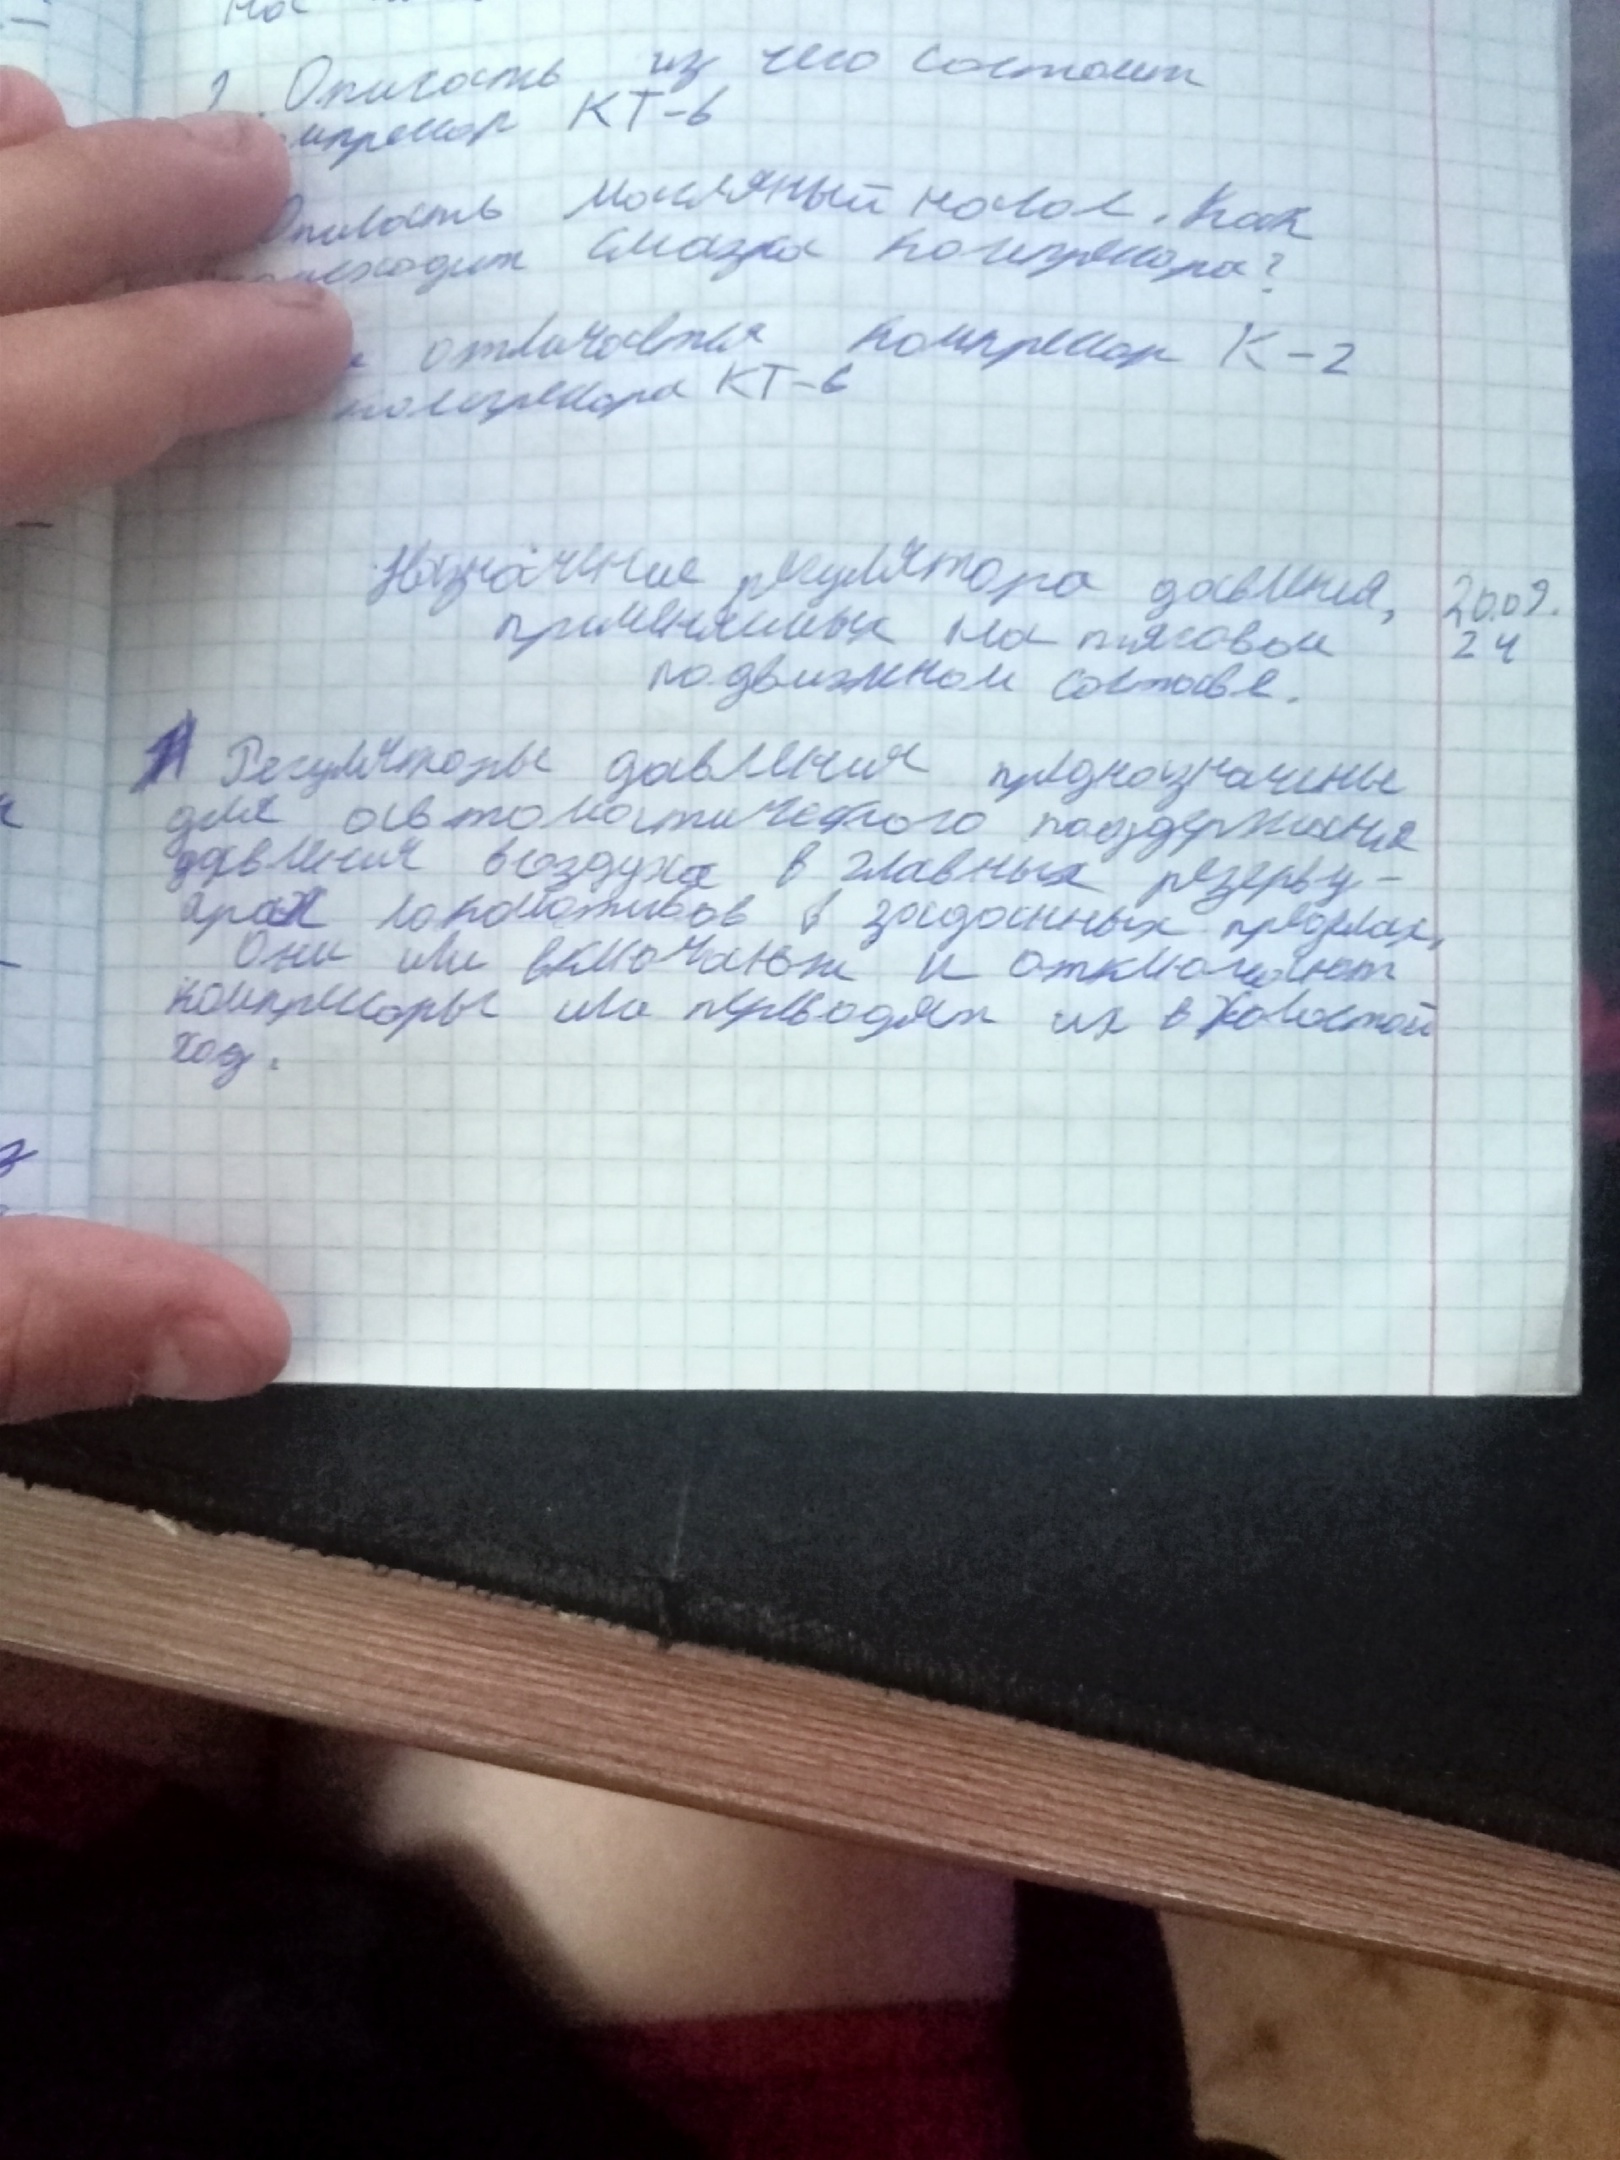 На
2. Описать из чего состоит
омпрессор КТ-6
Описать масляный насос. Как
происходит смазка компрессора?
отличается компрессор К-2
компрессора КТ-6
Назначение регулятора давления, 20.09.
применяемых на тяговом 24
подвижном составе.
Регуляторы давления предназначены
для автоматического поддержания
давления воздуха в главных резерву-
арах локомотивов в заданных пределах.
Они или включают и отключают
компрессоры или переводят их в холостой
ход.